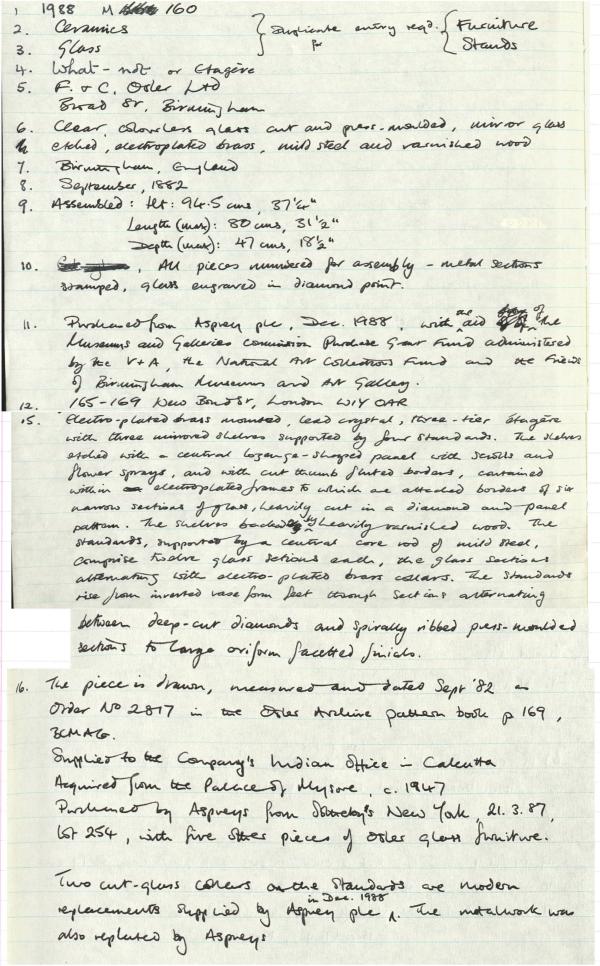 1 1988 M 160
2. Ceramics } Duplicate entry reqd. { Furniture
3. Glass for Stands
4. What-not or Etagère
5. F. & C. Osler Ltd
Broad St, Birmingham
6. Clear, colourless glass cut and press-moulded, mirror glass
etched, electroplated brass, mild steel and varnished wood
7. Birmingham, England
8. September, 1882
9. Assembled: Ht: 94.5 cms, 37¼"
Length (max): 80 cms, 31½"
Depth (max): 47 cms, 18½"
10. , All pieces numbered for assembly - metal sections
stamped, glass engraved in diamond point.
11. Purchased from Asprey plc, Dec. 1988, with the aid of the
Museums and Galleries Commission Purchase Grant Fund administered
by the V+A, the National Art Collections Fund and the Friends
of Birmingham Museums and Art Gallery.
12. 165-169 New Bond St, London W1Y 0AR
15. Electro-plated brass mounted, lead crystal, three-tier étagère
with three mirrored shelves supported by four standards. The shelves
etched with a central lozenge-shaped panel with scrolls and
flower sprays, and with cut thumb fluted borders, contained
within electroplated frames to which are attached borders of six
narrow sections of glass, heavily cut in a diamond and panel
pattern. The shelves backed by heavily varnished wood. The
standards, supported by a central core rod of mild steel,
comprise twelve glass sections each, the glass sections
alternating with electro-plated brass collars. The standards
rise from inverted vase form feet through sections alternating
between deep-cut diamonds and spirally ribbed press-moulded
sections to large oviform facetted finials.
16. The piece is drawn, measured and dated Sept '82 as
Order No 2817 in the Osler Archive pattern book p 169,
BCMAG.
Supplied to the Company's Indian Office in Calcutta
Acquired from the Palace of Mysore, c. 1947
Purchased by Aspreys from Sotheby's New York, 21.3.87,
lot 254, with five other pieces of Osler glass furniture.
Two cut-glass collars on the standards are modern
replacements supplied by Asprey plc in Dec. 1988. The metalwork was
also replated by Aspreys